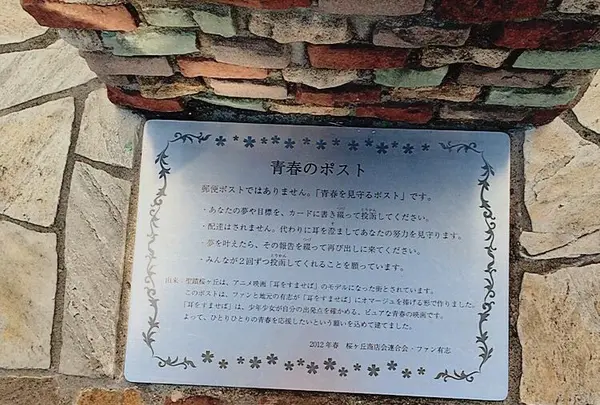 青春のポスト
郵便ポストではありません。「青春を見守るポスト」です。
・あなたの夢や目標を、カードに書き綴って投函してください。
・配達はされません。代わりに耳を澄ましてあなたの努力を見守ります。
・夢を叶えたら、その報告を綴って再び出しに来てください。
・みんなが2回ずつ投函してくれることを願っています。
由来 聖蹟桜ヶ丘は、アニメ映画「耳をすませば」のモデルになった街とされています。
このポストは、ファンと地元の有志が「耳をすませば」にオマージュを捧げる形で作りました。
「耳をすませば」は、少年少女が自分の出発点を確かめる、ピュアな青春の映画です。
よって、ひとりひとりの青春を応援したいという願いを込めて建てました。
2012年春 桜ヶ丘商店会連合会・ファン有志